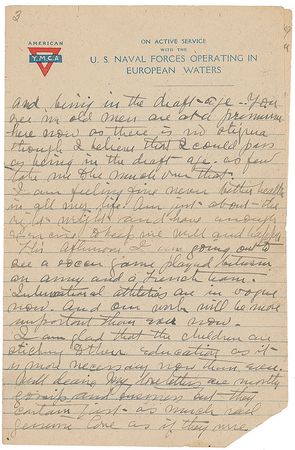 3
AMERICAN
Y.M.C.A
ON ACTIVE SERVICE
WITH THE
U. S. NAVAL FORCES OPERATING IN
EUROPEAN WATERS
and being in the draft-age. You
see my old men are at a premium
here now as there is no stigma
though I believe that I could pass
as being in the draft age. as few
take me to be much over that.
I am feeling fine never better health
in all my life. Am just about
and have enough
exercise to keep me well and happy.
This afternoon I am going out to
see a soccer game played between
an army and a French team.
International athletics are in vogue
now. And our work will be more
important than ever now.
I am glad that the children are
sticking to their education as it
is more necessary now than ever.
Well dearie My love letters are mostly
gossip and business but they
contain just as much real
genuine love as if they were